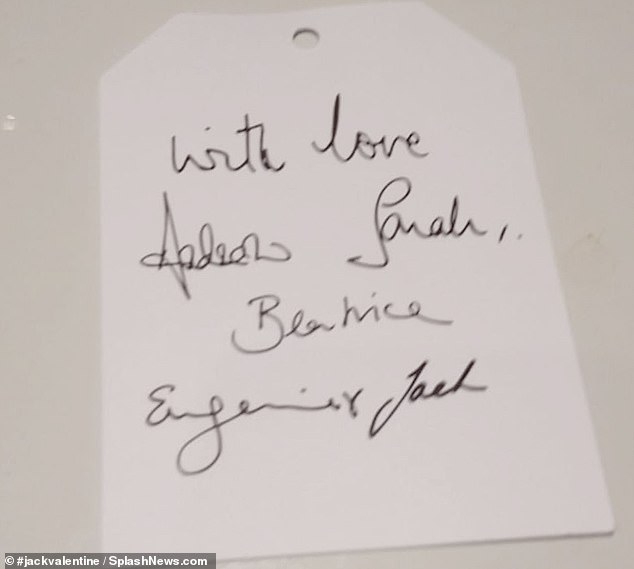 with love
Andrew Sarah,.
Beatrice
Eugenie & Jack
© #jackvalentine / SplashNews.com